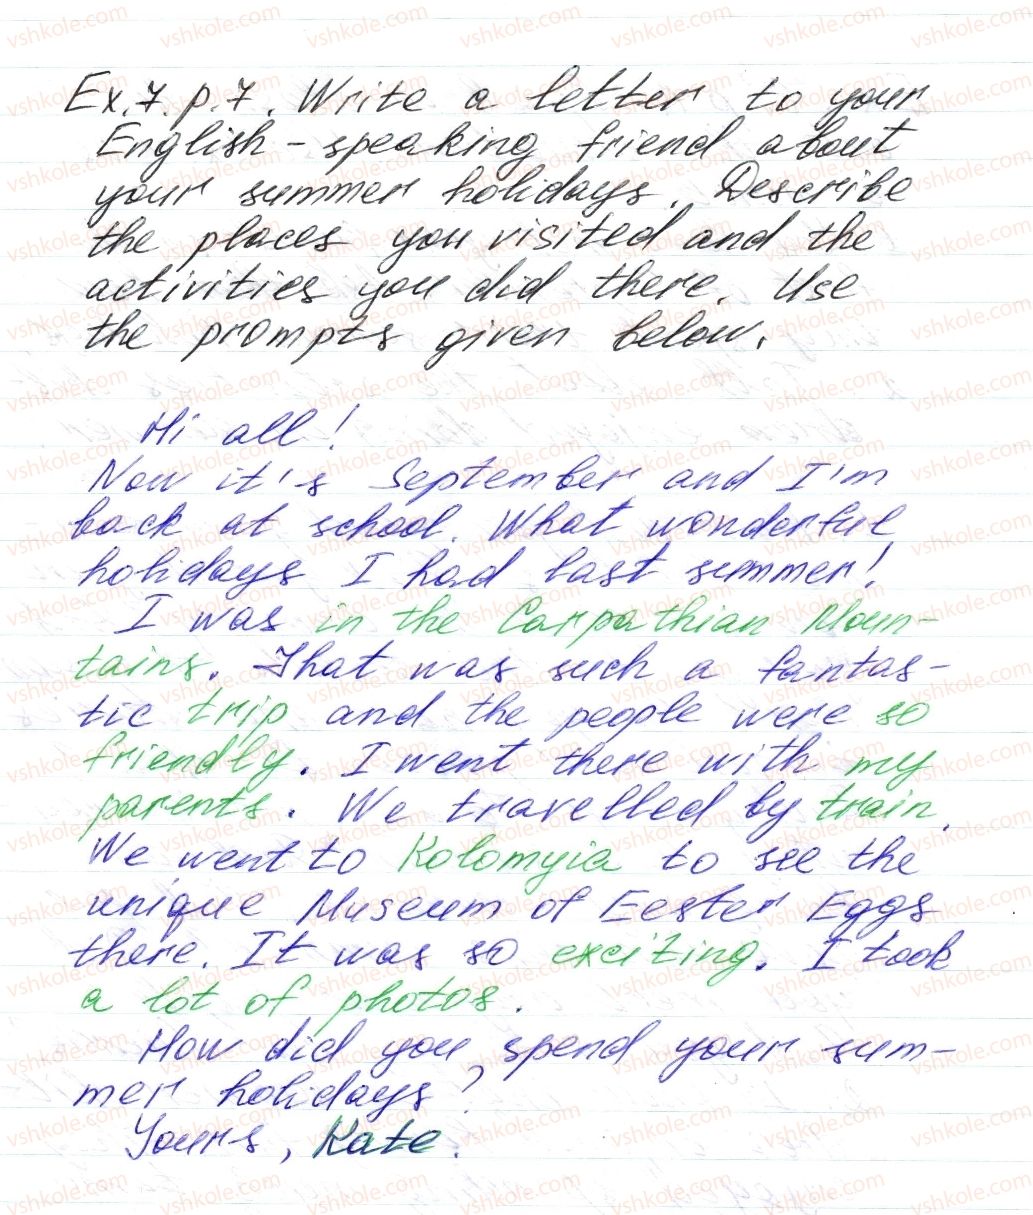 Ex.7.p.7. Write a letter to your
English-speaking friend about
your summer holidays. Describe
the places you visited and the
activities you did there. Use
the prompts given below.
Hi all!
Now it's September and I'm
back at school. What wonderful
holidays I had last summer!
I was in the Carpathian Moun-
tains. That was such a fantas-
tic trip and the people were so
friendly. I went there with my
parents. We travelled by train.
We went to Kolomyia to see the
unique Museum of Eester Eggs
there. It was so exciting. I took
a lot of photos.
How did you spend your sum-
mer holidays?
Yours, Kate.